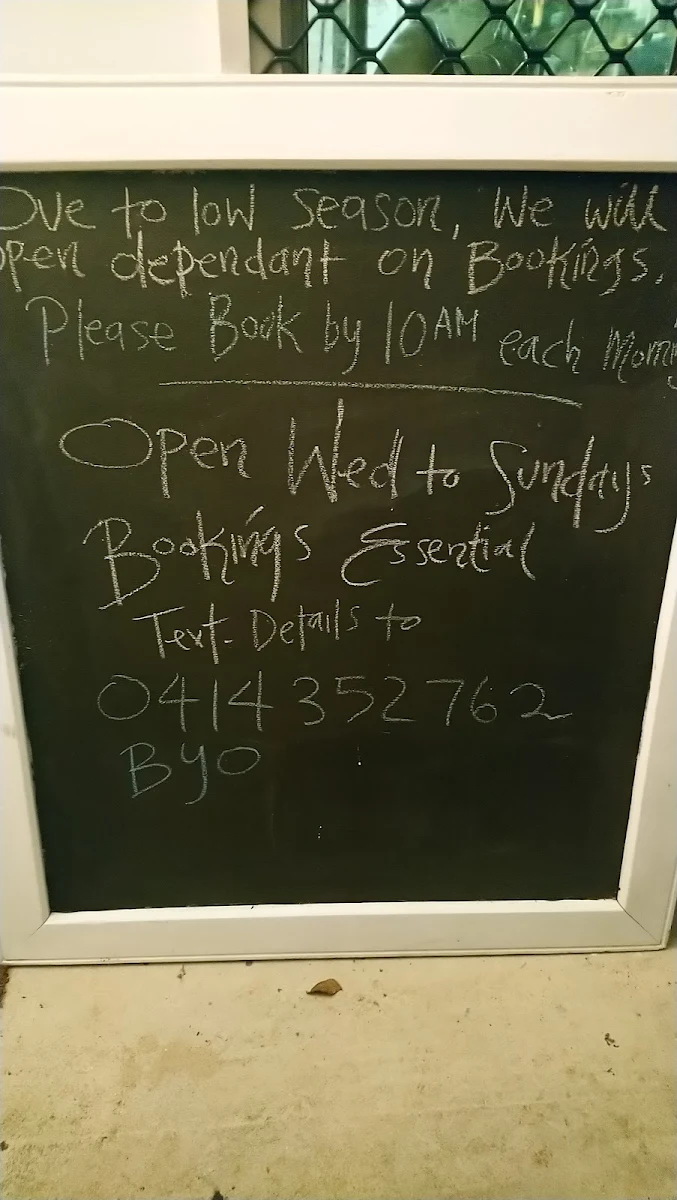 Due to low season, We will
open dependant on Bookings.
Please Book by 10AM each Morn
Open Wed to Sundays
Bookings Essential
Text Details to
0414 352 762
BYO